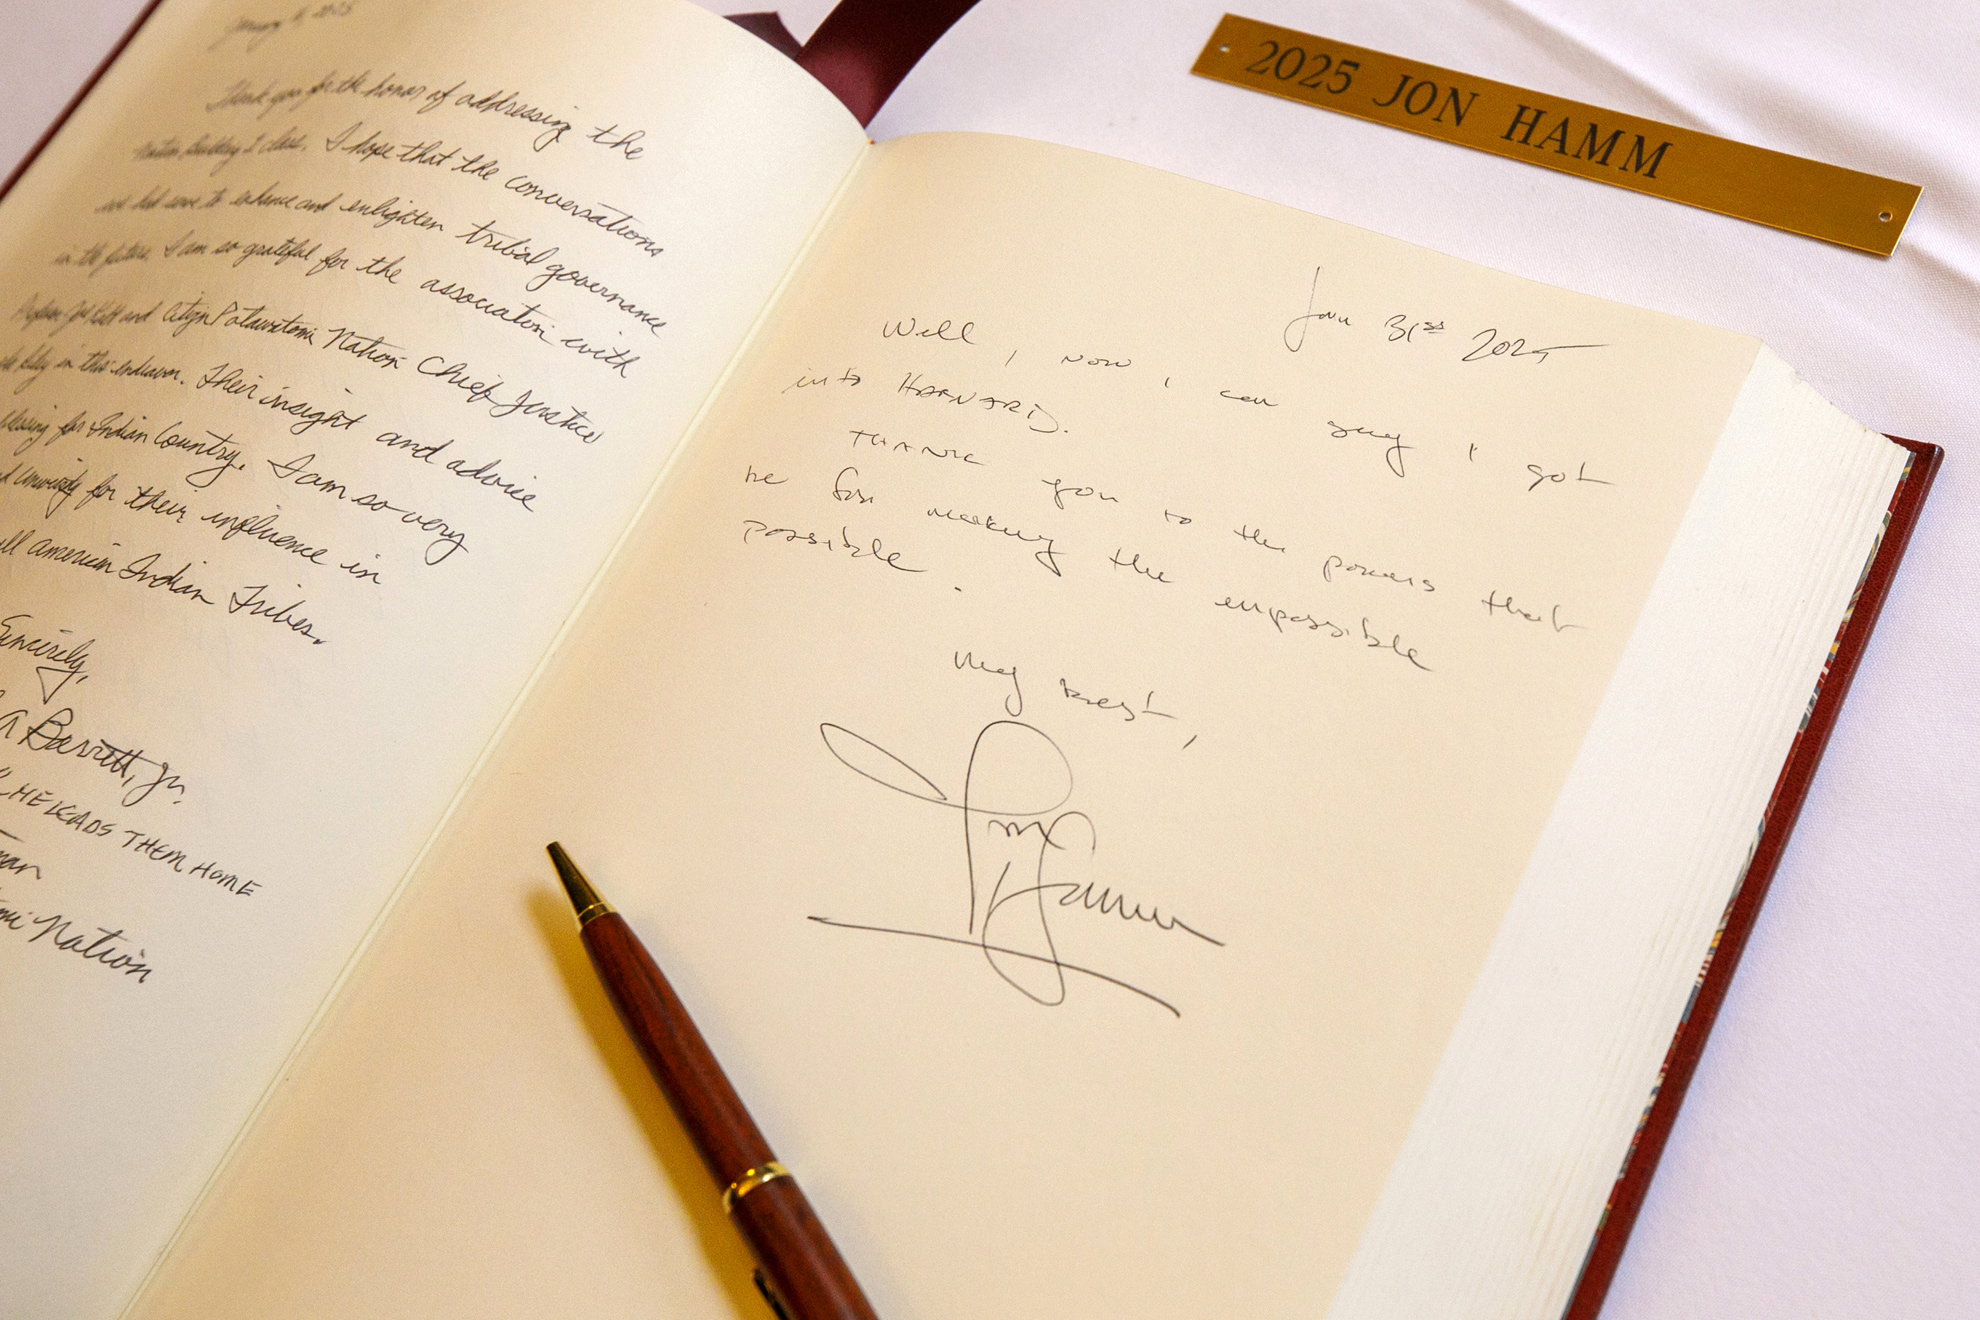 January 2025
Thank you for the honor of addressing the
Nation Building I class. I hope that the conversations
we had serve to enhance and enlighten tribal governance
in the future. I am so grateful for the association with
Professor and Citizen Potawatomi Nation Chief Justice
in this endeavor. Their insight and advice
blessing for Indian Country. I am so very
University for their influence in
all American Indian Tribes.
Sincerely,
Barrett, Jr.
"HE LEADS THEM HOME
Nation
2025 JON HAMM
Jan 31st 2025
Well, now I can say I got
into HARVARD.
THANK you to the powers that
be for making the impossible
possible.
My best,
Jon Hamm